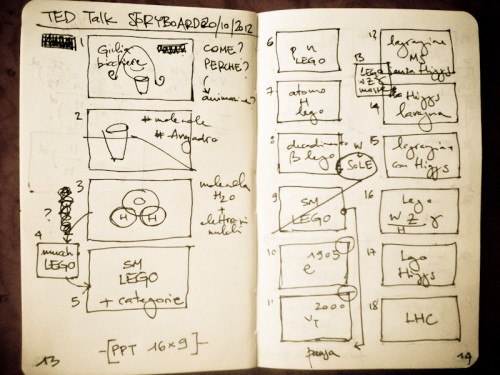 TED Talk STORYBOARD 20/10/2012
1
Giulia
bicchiere
COME?
PERCHÉ?
animazione?
2
# molecole
# Avogadro
3
O
H H
molecola
H2O
+
elettroni
nuclei
?
4
LEGO
5
SM
LEGO
+ categorie
-[PPT 16x9]-
13
6
p n
LEGO
7
atomo
H
lego
8
decadimento
β lego
W
SOLE
9
SM
LEGO
10
1905
e
11
2000
ντ
pausa
12
lagrangiana
MS
senza Higgs
13
LEGO
WZγ
massa
14
Higgs
lavagna
5
lagrangiana
con Higgs
16
Lego
W Z γ
H
17
Lego
Higgs
18
LHC
14